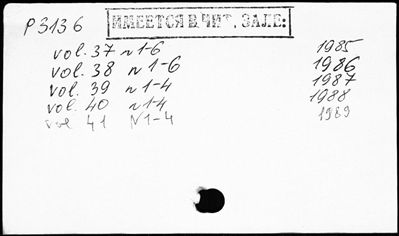 P 3136
ИМЕЕТСЯ В ЧИТ. ЗАЛЕ:
vol. 37 n 1-6 1985
vol. 38 n 1-6 1986
vol. 39 n 1-4 1987
vol. 40 n 1-4 1988
vol 41 N 1-4 1989